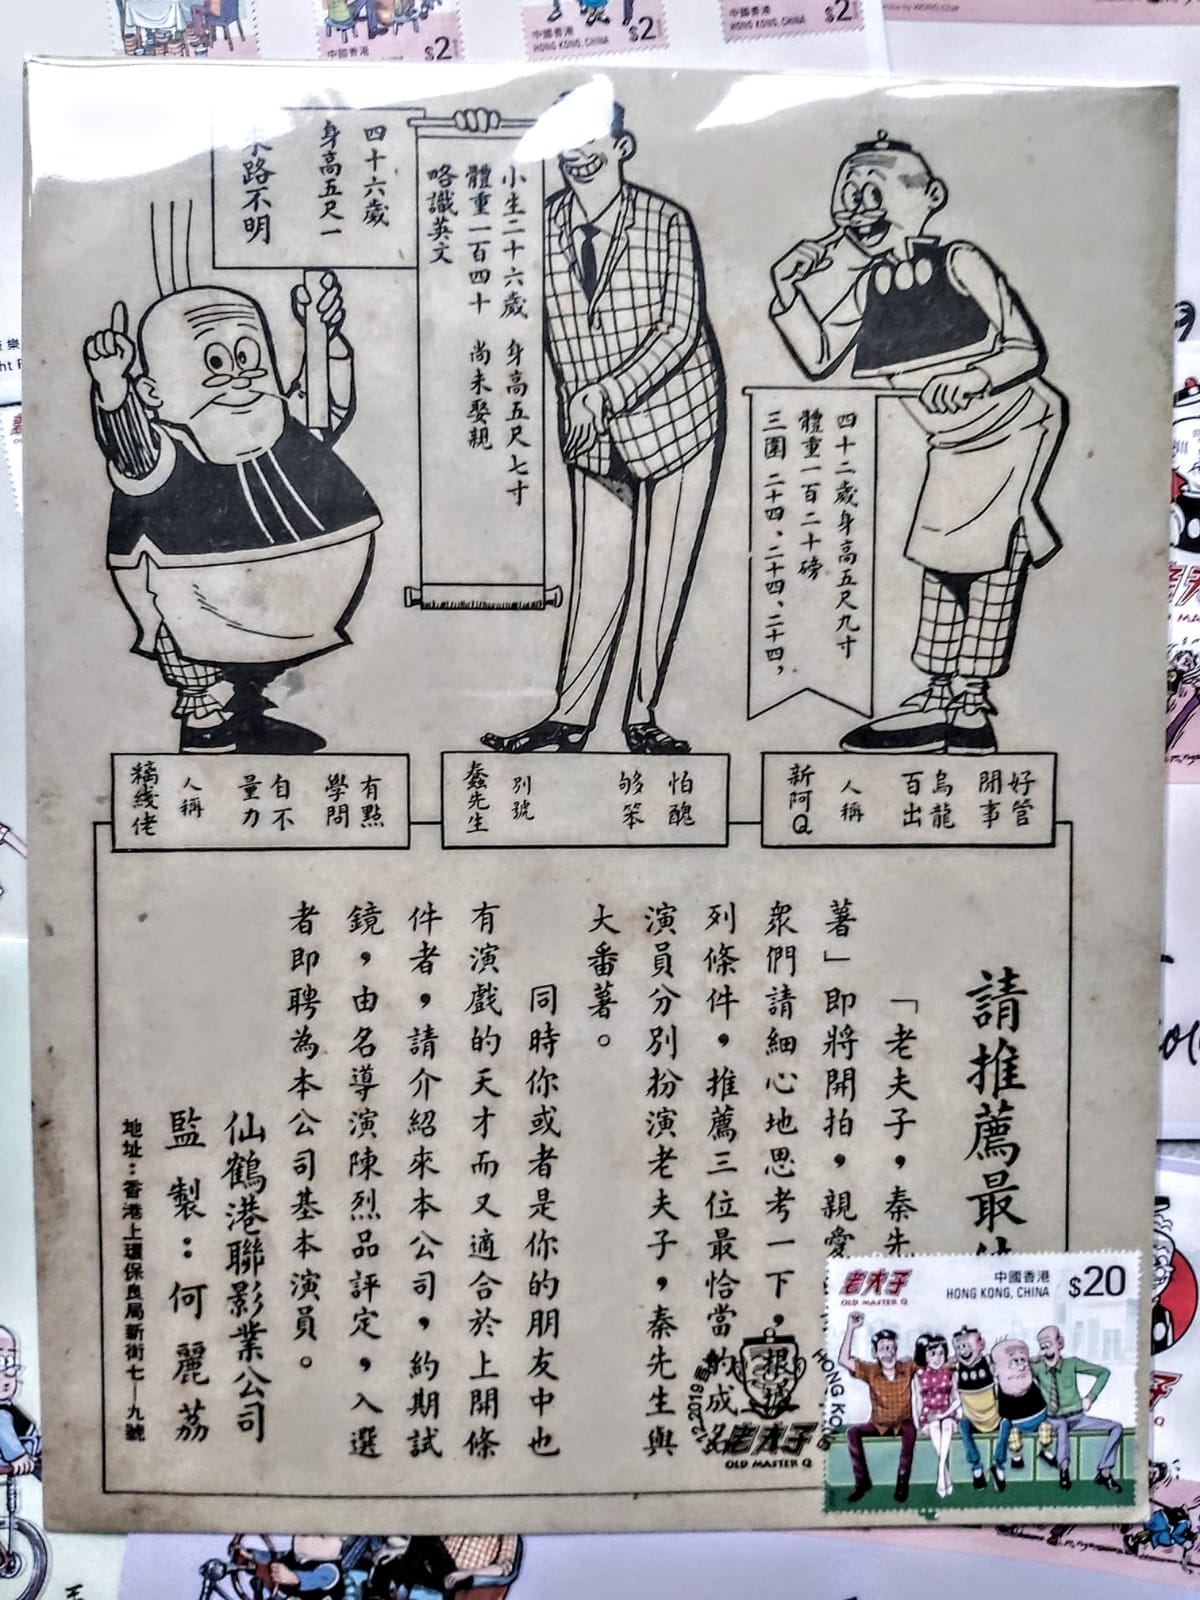 中國香港
$2
中國香港
HONG KONG, CHINA
$2
中國香港
HONG KONG, CHINA
$2
四十二歲身高五尺九寸
體重一百二十磅
三圍 二十四、二十四、二十四,
小生二十六歲 身高五尺七寸
體重一百四十 尚未娶親
略識英文
四十六歲
身高五尺一
路不明
好管
閒事
烏龍
百出
人稱
新阿Q
怕醜
够笨
別號
蠢先生
有點
學問
自不
量力
人稱
縞綫佬
請推薦最
「老夫子，秦先
薯」即將開拍，親愛
衆們請細心地思考一下，根據
列條件，推薦三位最恰當的成名
演員分別扮演老夫子，秦先生與
大番薯。
同時你或者是你的朋友中也
有演戲的天才而又適合於上開條
件者，請介紹來本公司，約期試
鏡，由名導演陳烈品評定，入選
者即聘為本公司基本演員。
仙鶴港聯影業公司
監製：何麗荔
地址：香港上環保良局新街七—九號
老夫子
OLD MASTER Q
中國香港
HONG KONG, CHINA
$20
老夫子
OLD MASTER Q
HONG KONG